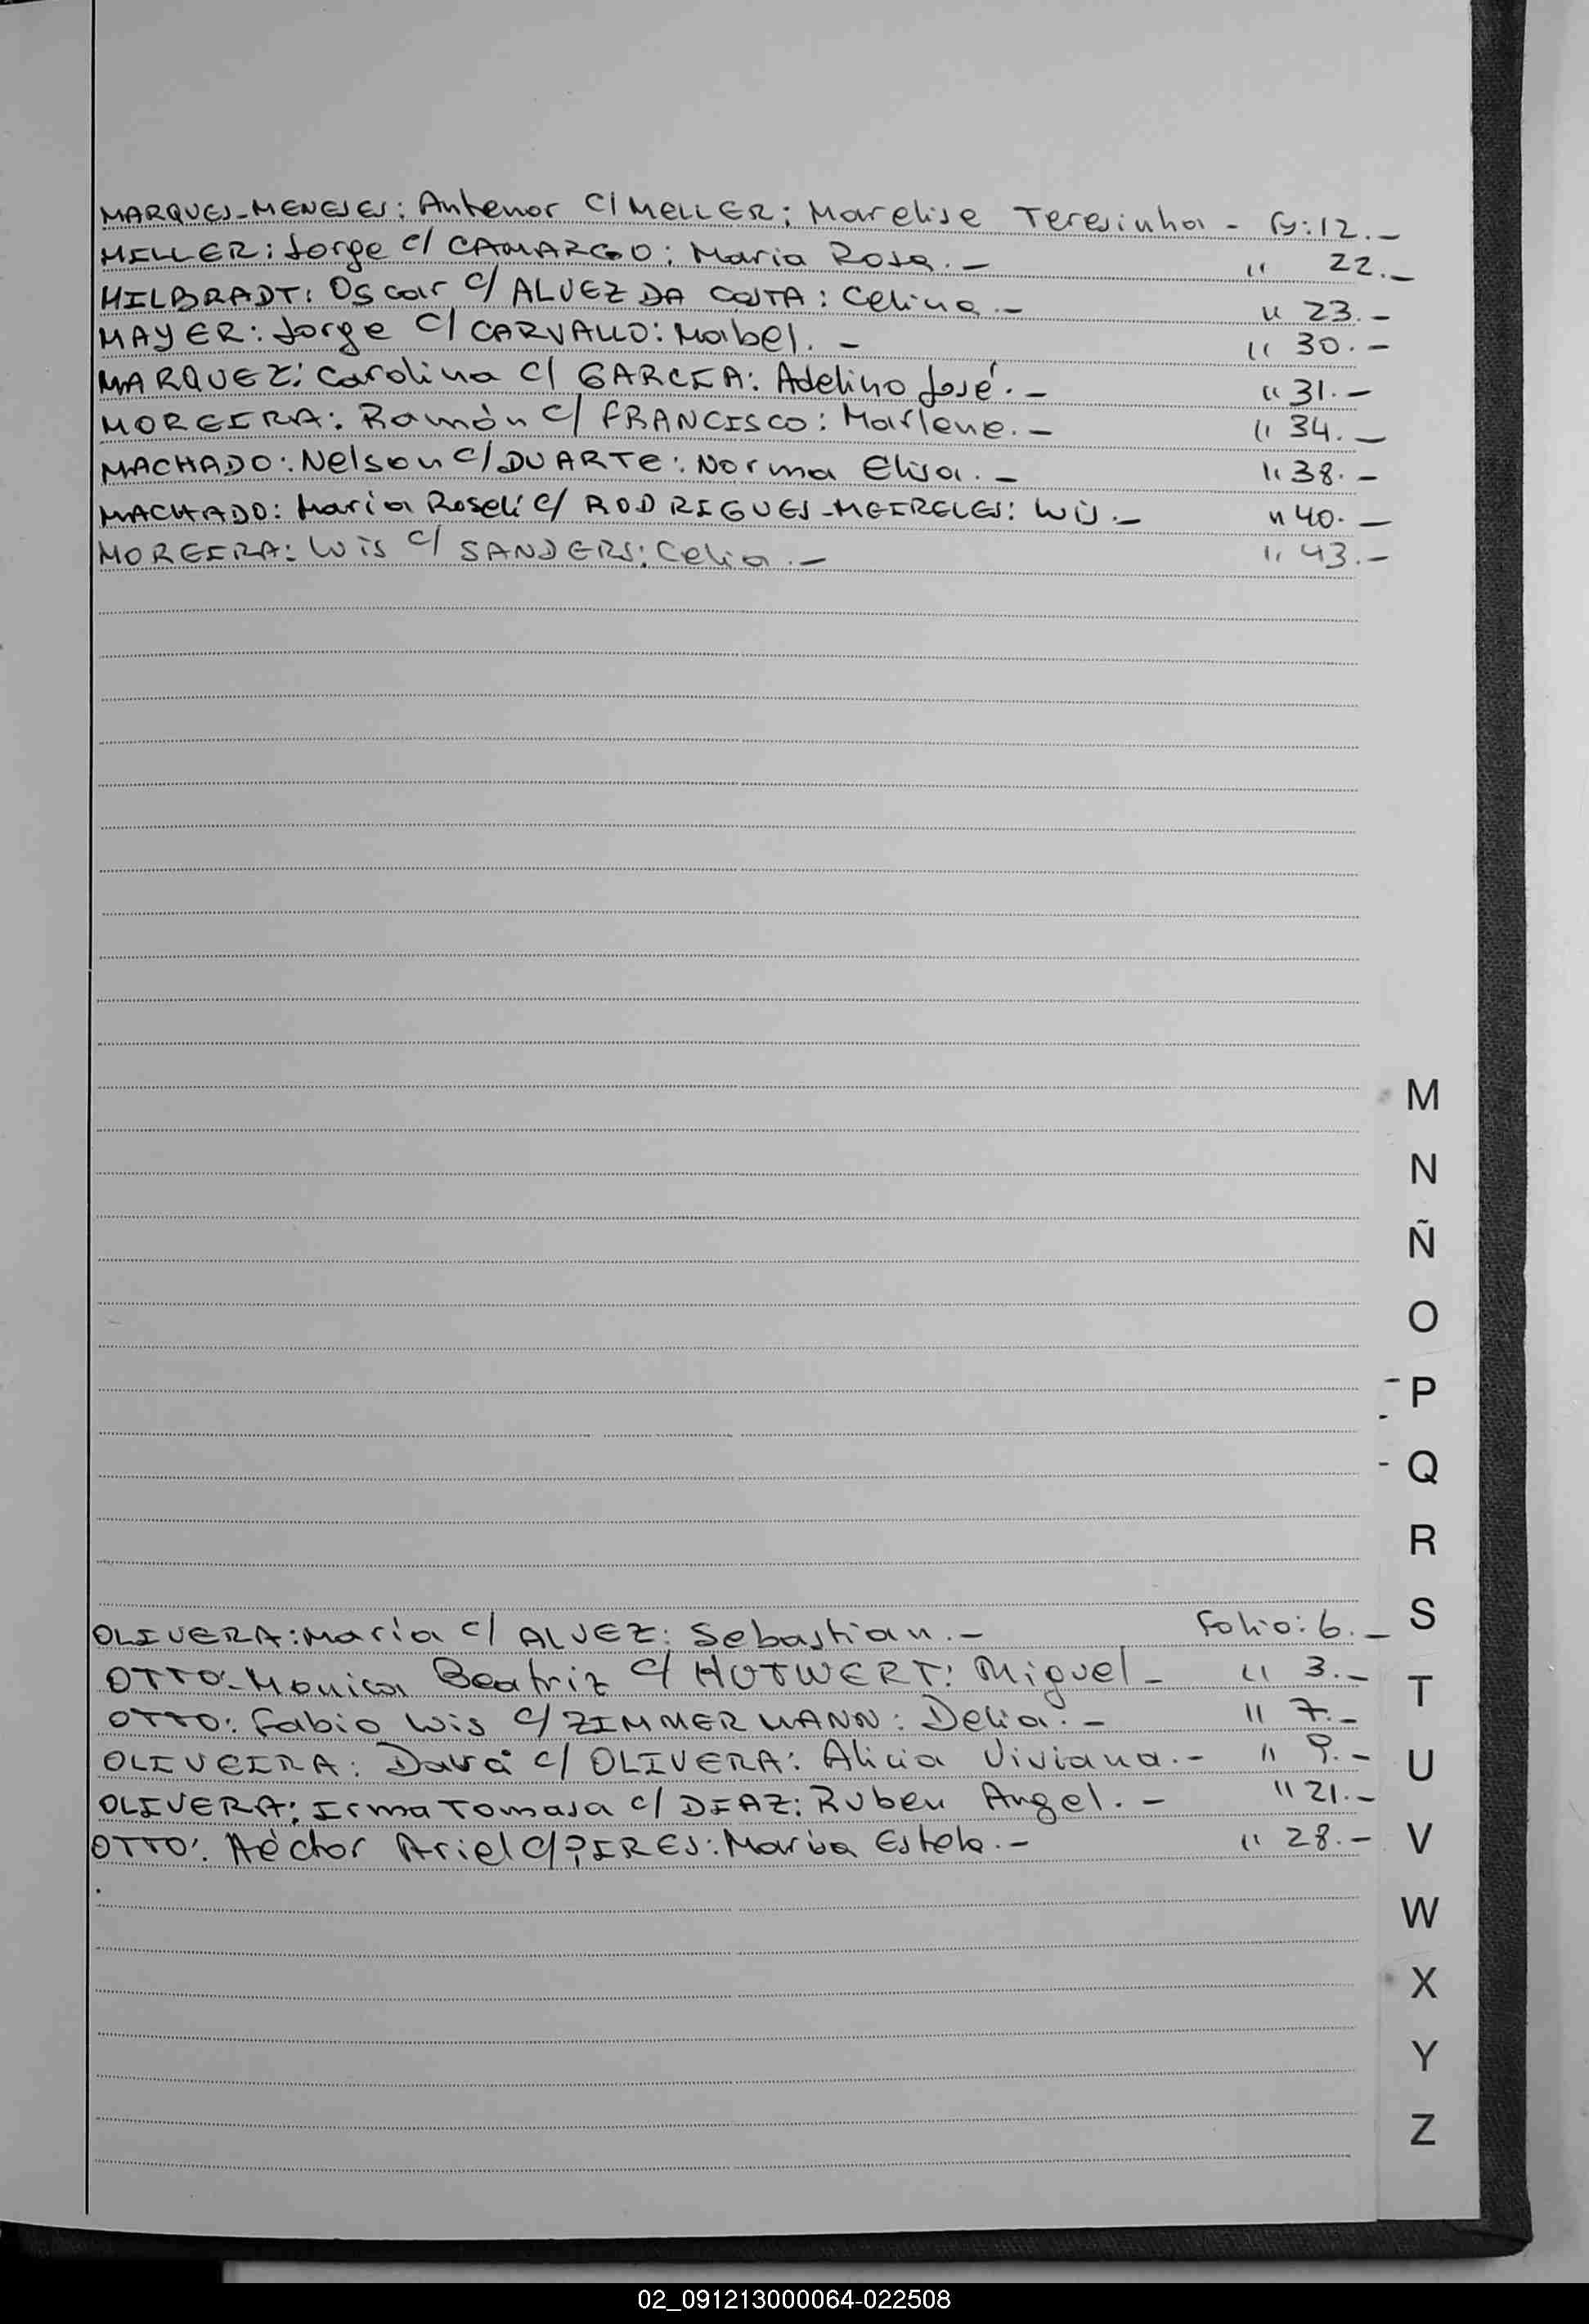 MARQUES-MENESES: Antenor C/ MELLER: Marelise Teresinha - Fº:12.-
MILLER: Jorge c/ CAMARGO: Maria Rosa.- " 22.-
MILBRADT: Oscar c/ ALVEZ DA COSTA: Celina.- " 23.-
MAYER: Jorge C/ CARVALLO: Mabel.- " 30.-
MARQUEZ: Carolina C/ GARCIA: Adelino José.- " 31.-
MOREIRA: Ramón C/ FRANCISCO: Marlene.- " 34.-
MACHADO: Nelson C/ DUARTE: Norma Elisa.- " 38.-
MACHADO: Maria Roseli c/ RODRIGUES-MEIRELES: Luis.- " 40.-
MOREIRA: Luis C/ SANDERS: Celia.- " 43.-
M
N
Ñ
O
P
Q
R
S
T
U
V
W
X
Y
Z
OLIVERA: María c/ ALVEZ: Sebastian.- Folio: 6.-
OTTO: Monica Beatriz c/ HUTWERT: Miguel - " 3.-
OTTO: Fabio Luis c/ ZIMMERMANN: Delia.- " 7.-
OLIVEIRA: c/ OLIVERA: Alicia Viviana.- " 9.-
OLIVERA: Irma Tomasa c/ DIAZ: Ruben Angel.- " 21.-
OTTO: Héctor Ariel C/ PIRES: Estela.- " 28.-
02_091213000064-022508